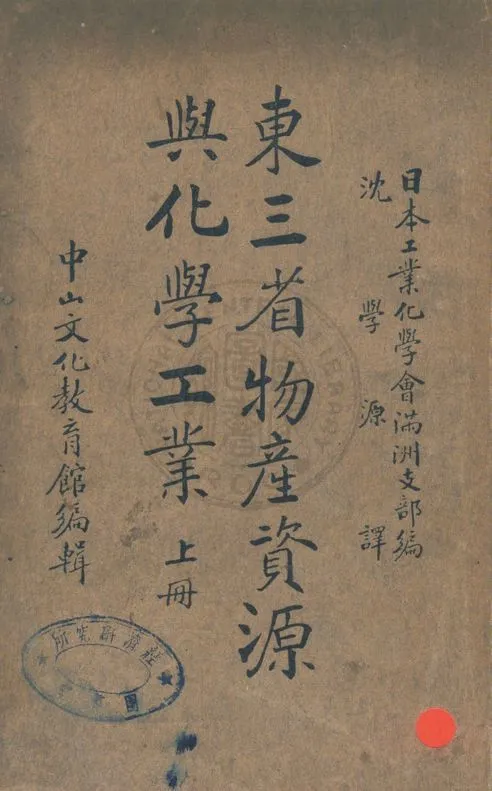 日本工業化學會滿洲支部編
沈學源譯
東三省物產資源
與化學工業 上冊
中山文化教育館編輯